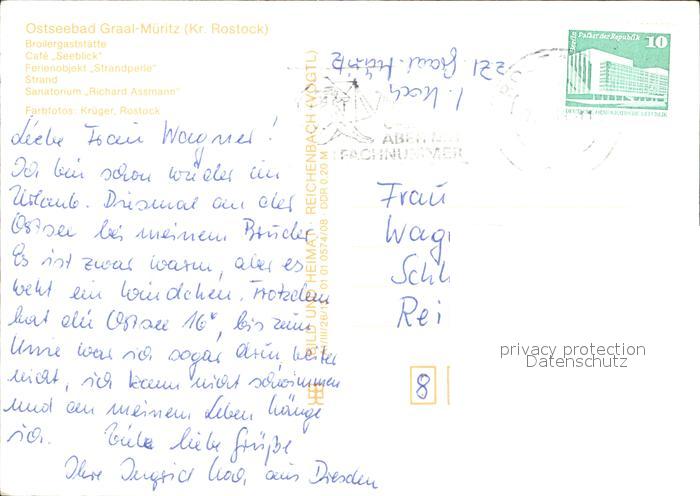 Ostseebad Graal-Müritz (Kr. Rostock)
Broilergaststätte
Café „Seeblick"
Ferienobjekt „Strandperle"
Strand
Sanatorium „Richard Assmann"
Farbfotos: Krüger, Rostock
Liebe Frau Wagner!
Ich bin schon wieder im
Urlaub. Diesmal an der
Ostsee bei meinem Bruder
Es ist zwar warm, aber es
weht ein Windchen. Trotzdem
hat die Ostsee 16°, bis zum
Knie war ich sogar drin, weiter
nicht, ich kann nicht schwimmen
und an meinem Leben hänge
ich. Viele liebe Grüße
Ihre Ingrid Koch aus Dresden
BILD UND HEIMAT · REICHENBACH (VOGTL)
01 01 0574/08 DDR 0,20 M
I. Koch
Graal-Müritz
ÜBER
FACHNUMMER
Palast der Republik
10
DEUTSCHE DEMOKRATISCHE REPUBLIK
Frau
Wag
Sch
Rei
8
privacy protection
Datenschutz